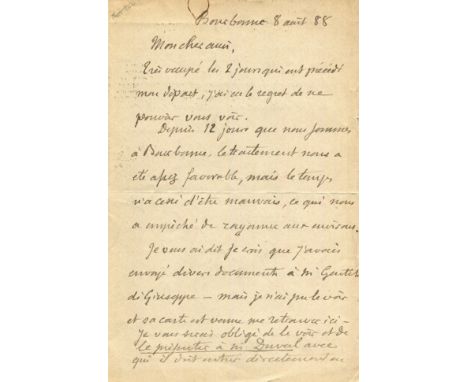 Bourbonne 8 août 88
Mon cher ami,
Très occupé les 2 jours qui ont précédé
mon départ, j'ai eu le regret de ne
pouvoir vous voir.
Depuis 12 jours que nous sommes
à Bourbonne, le traitement nous a
été assez favorable, mais le temps
n'a cessé d'être mauvais, ce qui nous
a empêché de rayonner aux environs.
Je vous ai dit je crois que j'avais
envoyé divers documents à M Gentil
di Giuseppe — mais je n'ai pu le voir
et sa carte est venue me retrouver ici —
Je vous serais obligé de le voir et de
le présenter à M. Duval avec
qui il doit entrer directement en